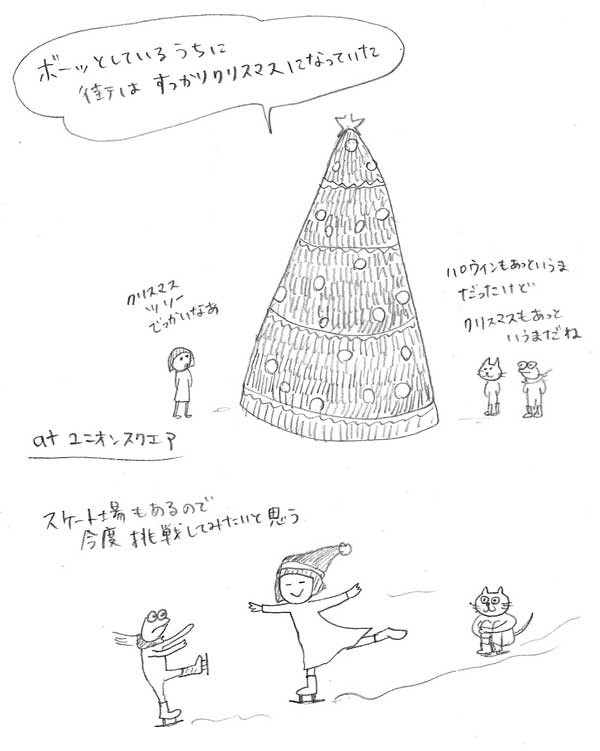 ボーッとしているうちに
街は すっかりクリスマスになっていた
クリスマス
ツリー
でっかいなあ
ハロウィンもあっというま
だったけど
クリスマスもあっと
いうまだね
at ユニオンスクエア
スケート場もあるので
今度 挑戦してみたいと思う